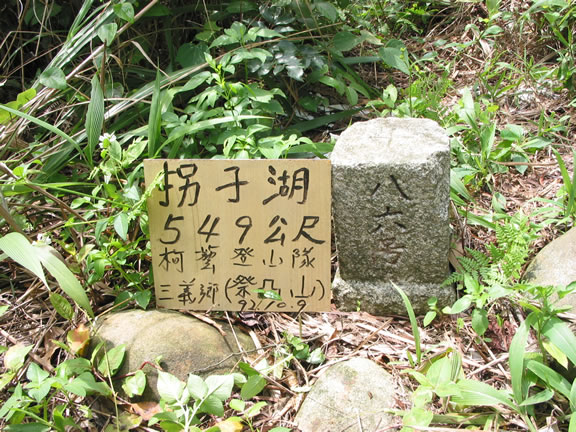 拐子湖
549公尺
柯藝登山隊
三義鄉(祭凸山)
92.10.9
八六号